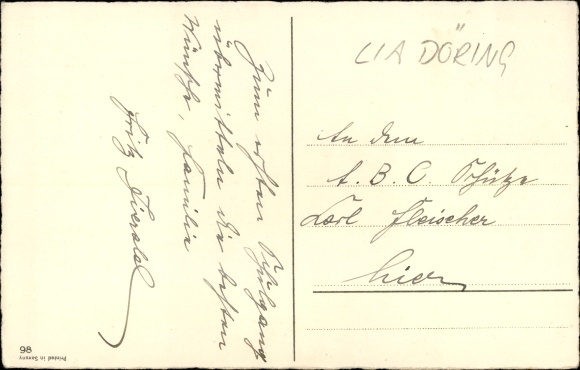 Zum ersten Schulgang
übermitteln die besten
Wünsche, Familie
Fritz
LIA DÖRING
An dem
A. B. C. Schütze
Karl Fleischer
hier
98
Printed in Saxony